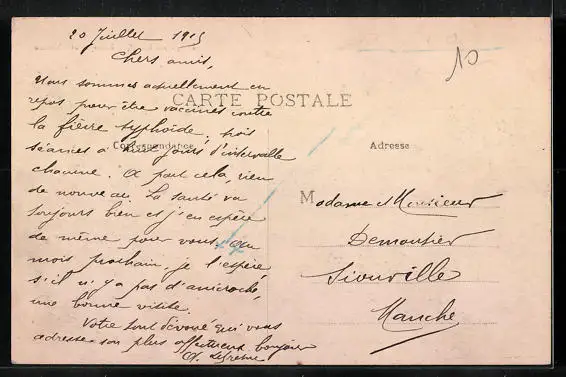 20 Juillet 1915
10
Chers amis,
Nous sommes actuellement en
repos pour être vaccinés contre
CARTE POSTALE
la fièvre typhoïde, trois
Correspondance
Adresse
séances à huit jours d'intervalle
chacune. A part cela, rien
de nouveau. La santé va
toujours bien et j'en espère
de même pour vous. Au
mois prochain, je l'espère
s'il n'y a pas d'anicroche,
une bonne visite.
Votre tout dévoué qui vous
adresse son plus affectueux bonjour
Madame et Monsieur
Demoutier
Siouville
Manche